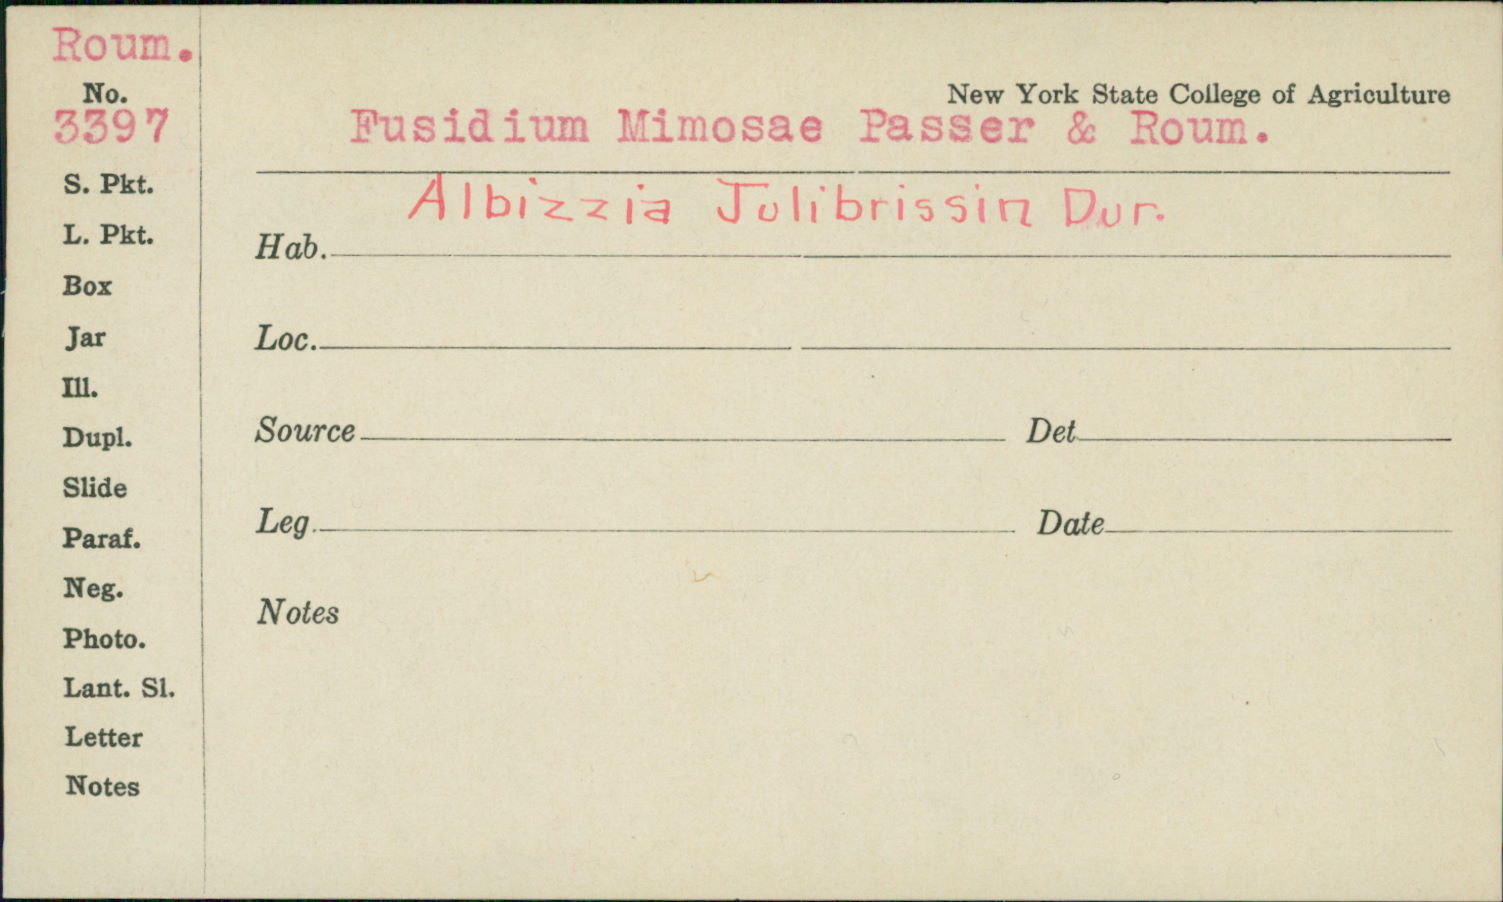 Roum.
No.
3397
S. Pkt.
L. Pkt.
Box
Jar
Ill.
Dupl.
Slide
Paraf.
Neg.
Photo.
Lant. Sl.
Letter
Notes
New York State College of Agriculture
Fusidium Mimosae Passer & Roum.
Albizzia Julibrissin Dur.
Hab.
Loc.
Source Det
Leg. Date
Notes